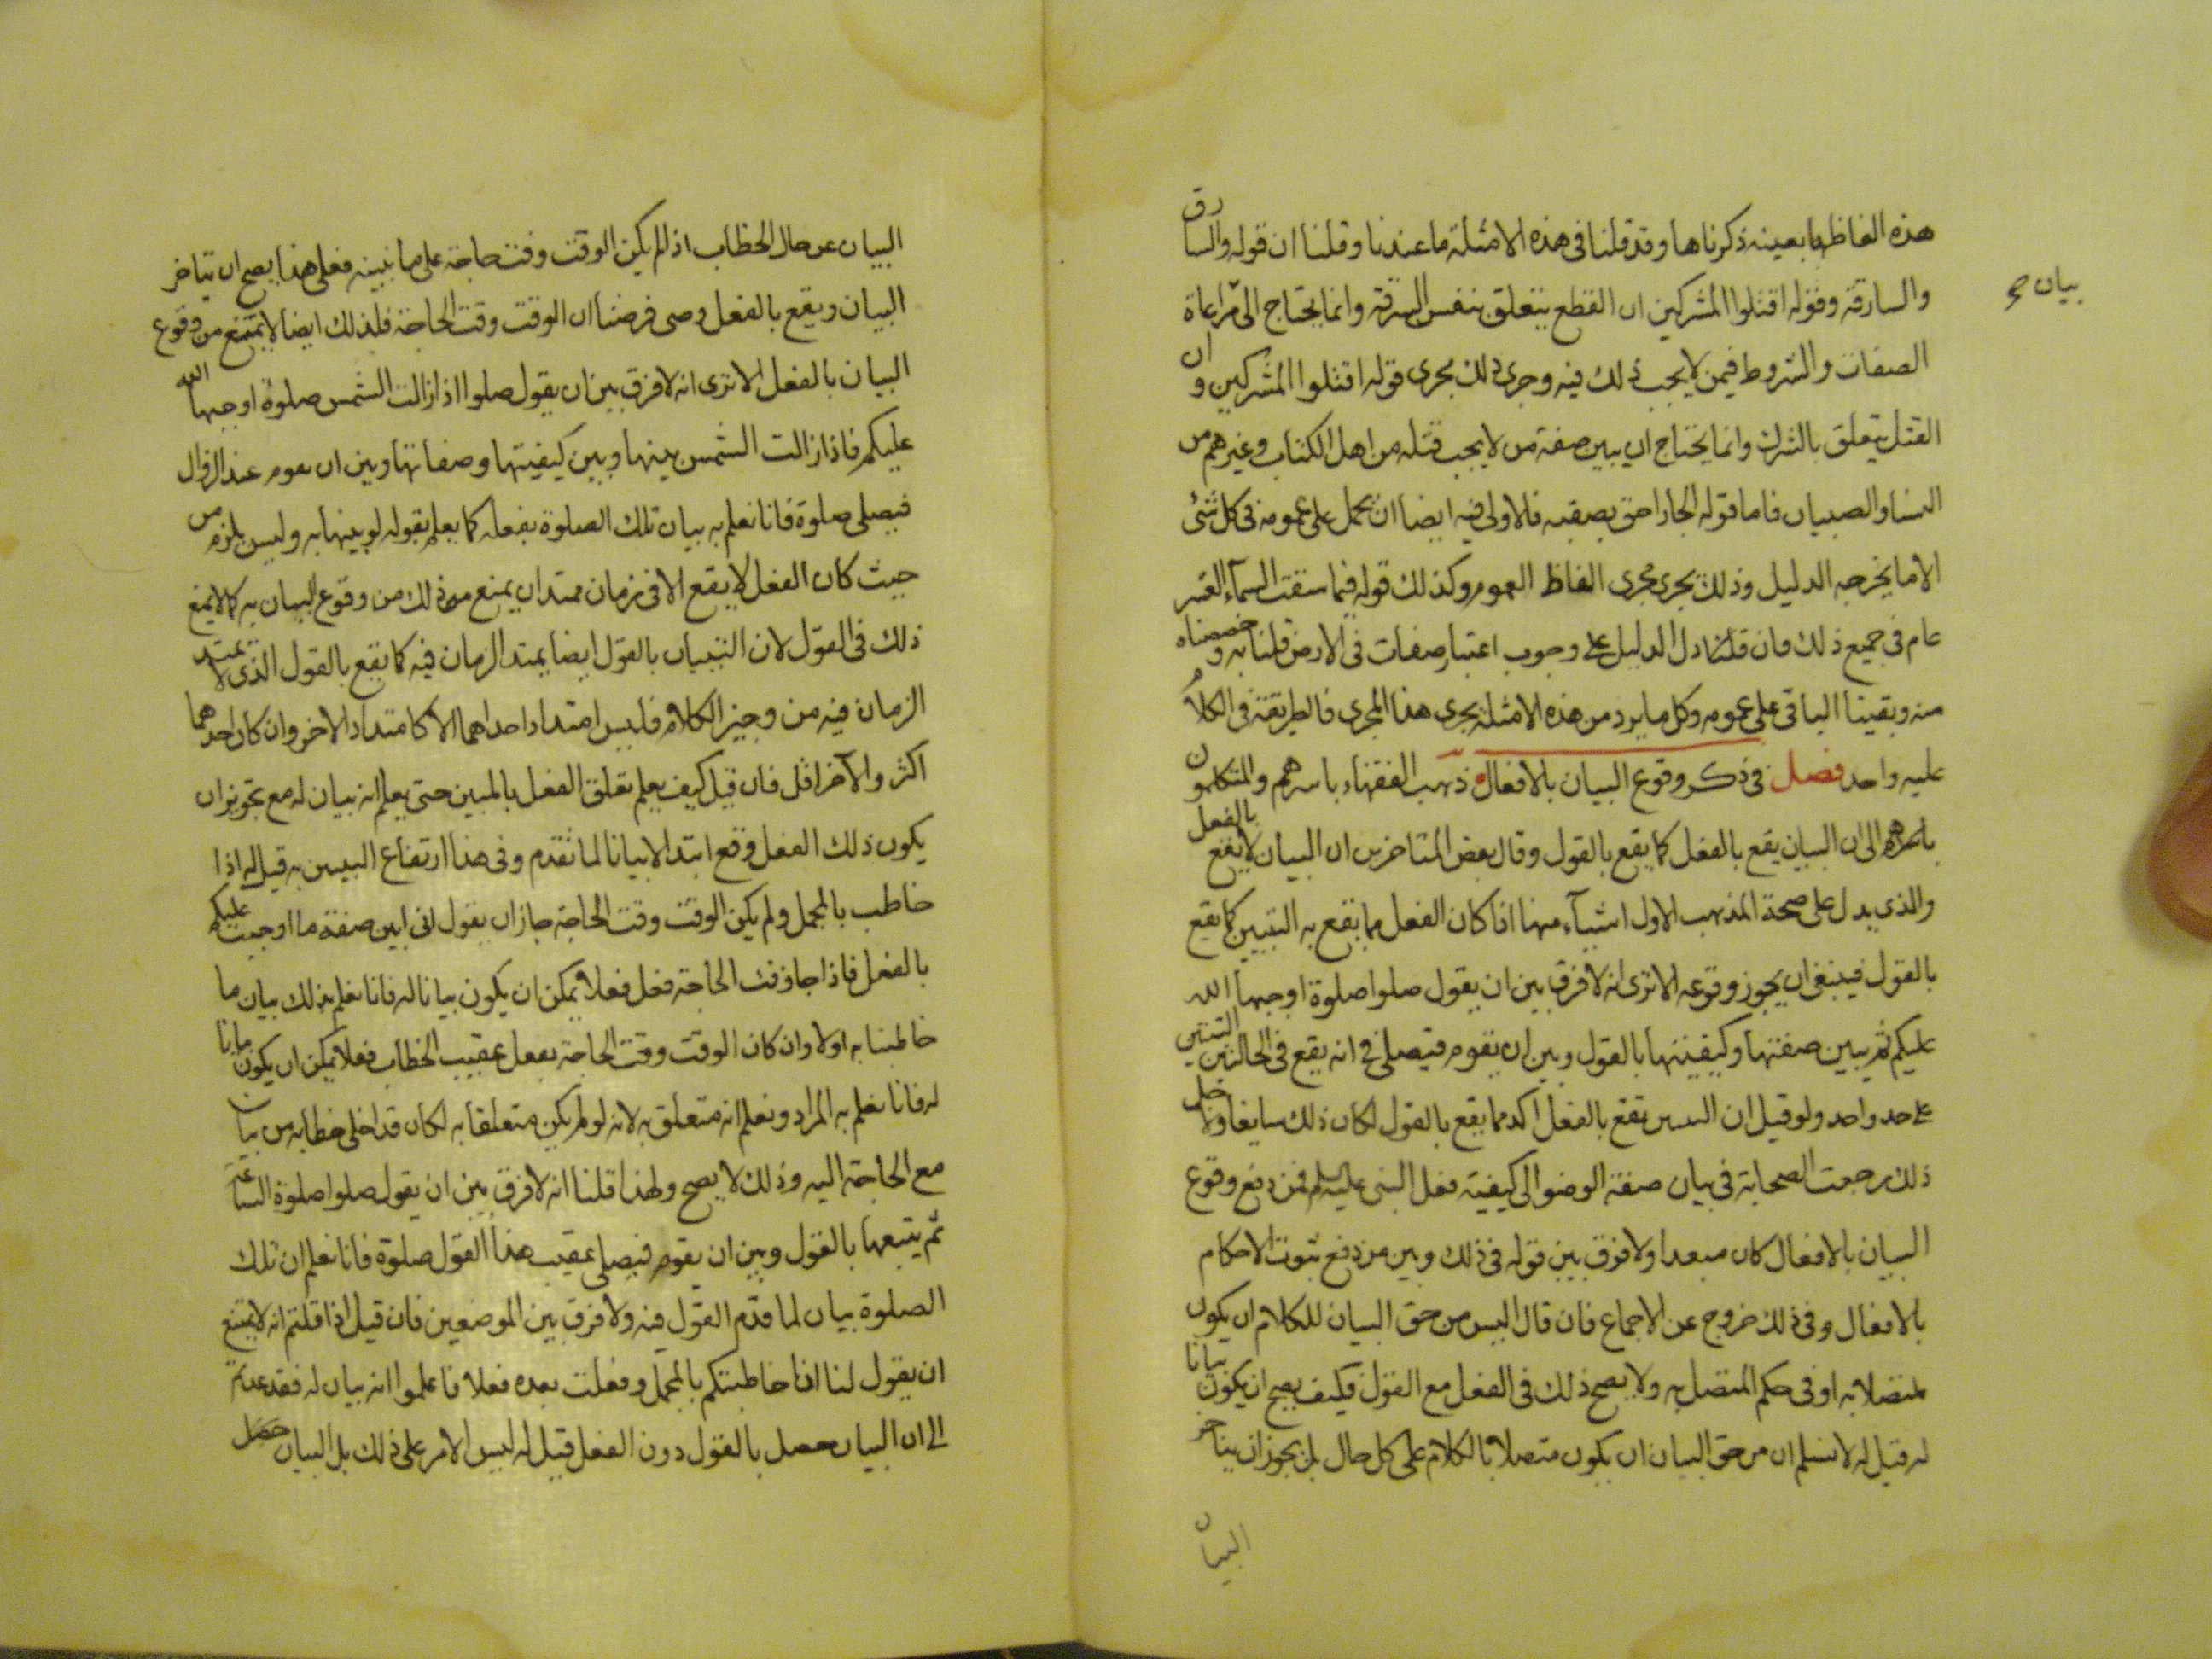 هذه الفاظ بما بعينه ذكرناها وقد قلنا فى هذه الامثلة ما عندنا وقلنا ان قوله والسارق
والسارقة وقوله اقتلوا المشركين ان القطع يتعلق بنفس السرقة وانما يحتاج الى مراعاة
بيان
الصفات والشروط فيمن لا يجب ذلك فيه وجرى ذلك مجرى قوله اقتلوا المشركين وان
القتل يتعلق بالشرك وانما يحتاج ان يبين صفة من لا يجب قتله من اهل الكتاب وغيرهم من
النسا والصبيان فاما قوله الجار احق بصقبه فالاولى فيه ايضا ان يحمل على عمومه فى كل شئ
الا ما يخرجه الدليل وذلك يجرى مجرى الفاظ العموم وكذلك قوله فيما سقت السمآء العشر
عام فى جميع ذلك فان قلنا دل الدليل على وجوب اعتبار صفات فى الارض قلنا به وخصصناه
منه وبقينا الباقى على عمومه وكل ما يرد من هذه الامثلة يجرى هذا المجرى فالطريقة فى الكلام
عليه واحد فصل فى ذكر وقوع البيان بالافعال ذهب الفقهاء باسرهم والمتكلمون
باسرهم الى ان البيان يقع بالفعل كما يقع بالقول وقال بعض المتاخرين ان البيان لا يقع بالفعل
والذى يدل على صحة المذهب الاول اشيآء منها اذا كان الفعل مما يقع به التبيين كما يقع
بالقول فينبغى ان يجوز وقوعه الا ترى انه لا فرق بين ان يقول صلوا صلوة اوجبها الله
عليكم ثم يبين صفتها وكيفيتها بالقول وبين ان يقوم فيصلى فى انه يقع فى الحالين التبيين
على حد واحد ولو قيل ان التبيين يقع بالفعل اكد مما يقع بالقول لكان ذلك سايغا ولاجل
ذلك رجعت الصحابة فى بيان صفة الوضو الى كيفية فعل النبى عليه السلم فمن دفع وقوع
البيان بالافعال كان مبعدا ولا فرق بين قوله فى ذلك وبين من دفع ثبوت الاحكام
بالافعال وفى ذلك خروج عن الاجماع فان قال اليس من حق البيان للكلام ان يكون
متصلا به او فى حكم المتصل به ولا يصح ذلك فى الفعل مع القول فكيف يصح ان يكون بيانا
له قيل له لا نسلم ان من حق البيان ان يكون متصلا بالكلام على كل حال بل يجوز ان يتاخر
البيان
البيان عن حال الخطاب اذا لم يكن الوقت وقت حاجة على ما نبينه فعلى هذا يصح ان يتاخر
البيان ويقع بالفعل ومتى فرضنا ان الوقت وقت الحاجة فلذلك ايضا لا يمتنع من وقوع
البيان بالفعل الا ترى انه لا فرق بين ان يقول صلوا اذا زالت الشمس صلوة اوجبها الله
عليكم فاذا زالت الشمس بينها وبين كيفيتها وصفاتها وبين ان يقوم عند الزوال
فيصلى صلوة فانا نعلم به بيان تلك الصلوة بفعله كما يعلم بقوله لو بينها به وليس يلزم من
حيث كان الفعل لا يقع الا فى زمان ممتد ان يمنع من ذلك من وقوع البيان به كما لا يمنع
ذلك فى القول لان التبيان بالقول ايضا يمتد الزمان فيه كما يقع بالقول الذى لا يمتد
الزمان فيه من وجيز الكلام فليس امتداد احداهما الا كامتداد الاخر وان كان احدهما
اكثر والآخر اقل فان قيل كيف يعلم تعلق الفعل بالمبين حتى يعلم انه بيان له مع تجويز ان
يكون ذلك الفعل وقع ابتدا لا بيانا لما تقدم وفى هذا ارتفاع التبيين به قيل له اذا
خاطب بالمجمل ولم يكن الوقت وقت الحاجة جاز ان يقول انى ابين صفة ما اوجبت عليكم
بالفعل فاذا جا وقت الحاجة فعل فعلا يمكن ان يكون بيانا له فانا نعلم بذلك بيان ما
خاطبنا به اولا وان كان الوقت وقت الحاجة يفعل عقيب الخطاب فعلا يمكن ان يكون بيانا
له فانا نعلم به المراد ونعلم انه متعلق به لانه لو لم يكن متعلقا به لكان قد اخلى خطابه من بيان
مع الحاجة اليه وذلك لا يصح ولهذا قلنا انه لا فرق بين ان يقول صلوا صلوة الساعة
ثم يتبعها بالقول وبين ان يقوم فيصلى عقيب هذا القول صلوة فانا نعلم ان تلك
الصلوة بيان لما قدم القول فيه ولا فرق بين الموضعين فان قيل اذا قلتم انه لا يمتنع
ان يقول لنا اذا خاطبتكم بالمجمل وفعلت بعده فعلا فاعلموا انه بيان له فقد عدتم
الى ان البيان حصل بالقول دون الفعل قيل له ليس الامر على ذلك بل البيان حصل